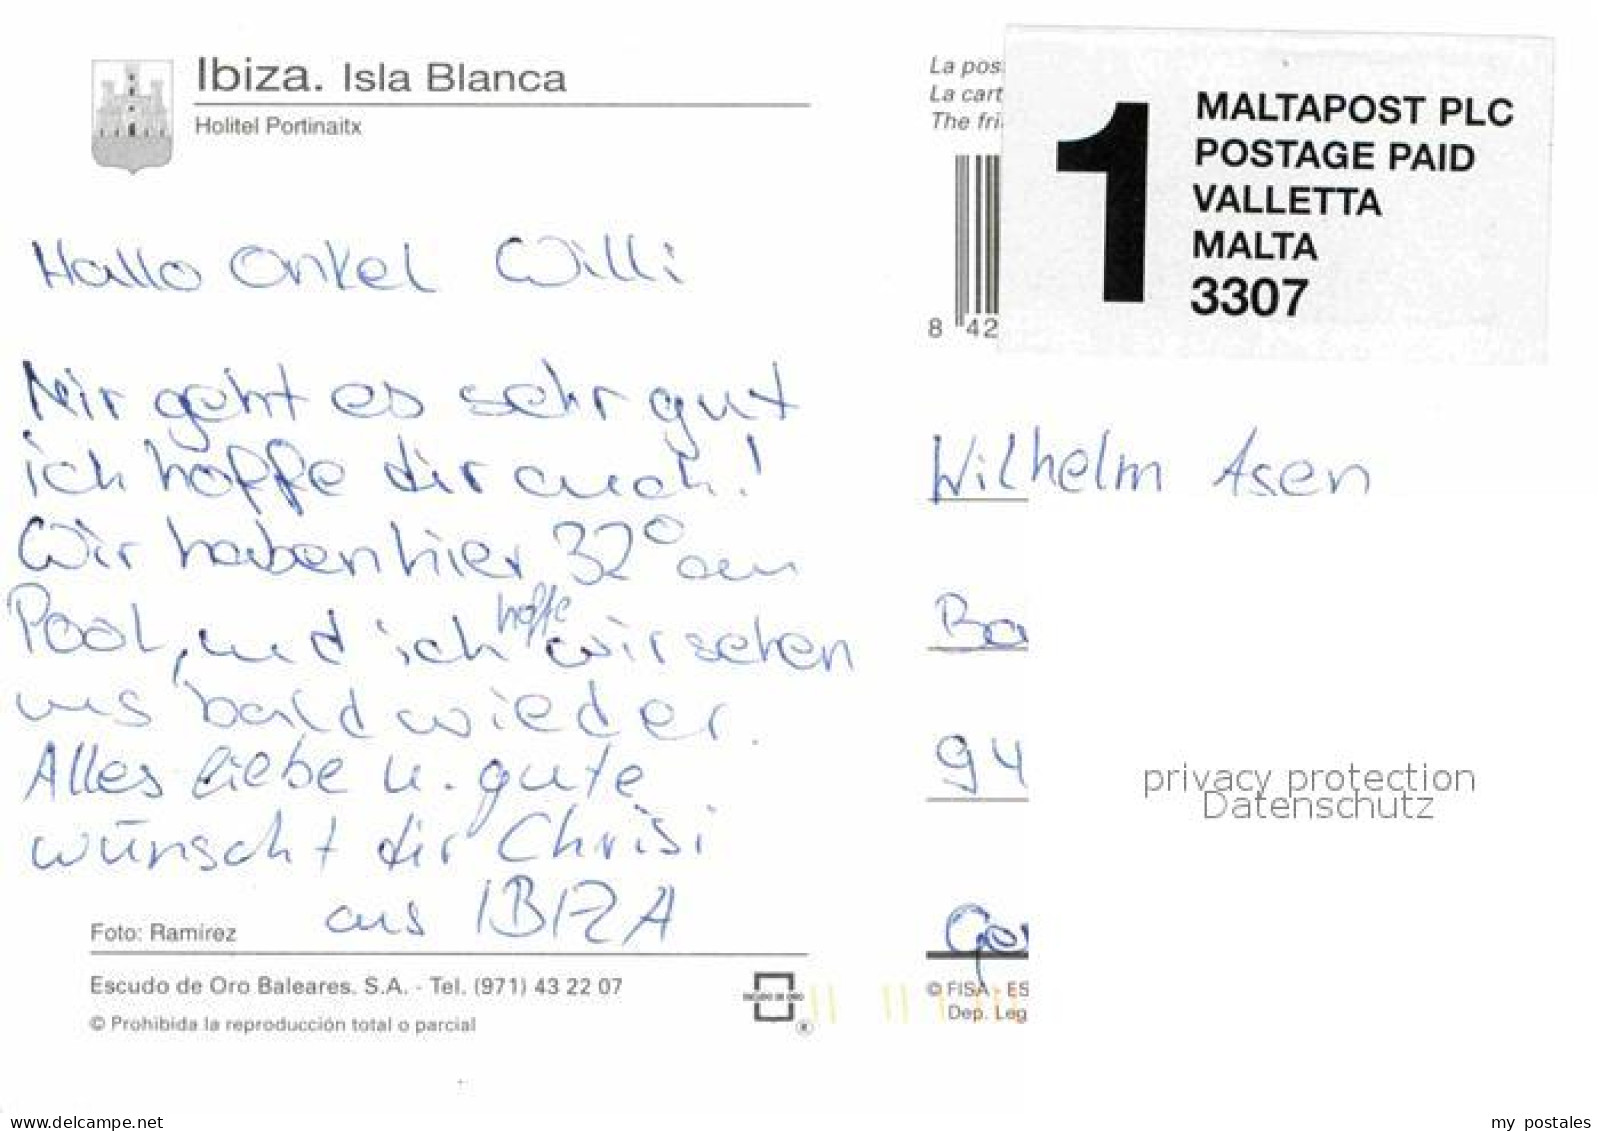 Ibiza. Isla Blanca
Holitel Portinaitx
Hallo Onkel Willi
Mir geht es sehr gut
ich hoffe dir auch!
Wir haben hier 32° am
Pool, und ich hoffe wir sehen
uns bald wieder.
Alles liebe u. gute
wünscht dir Chrisi
aus IBIZA
Foto: Ramirez
Escudo de Oro Baleares. S.A. - Tel. (971) 43 22 07
© Prohibida la reproducción total o parcial
ESCUDO DE ORO
®
La pos
La cart
The fri
8 42
1
MALTAPOST PLC
POSTAGE PAID
VALLETTA
MALTA
3307
Wilhelm Asen
Ba
94
Ger
© FISA - ES
Dep. Leg
privacy protection
Datenschutz
www.delcampe.net
my_postales